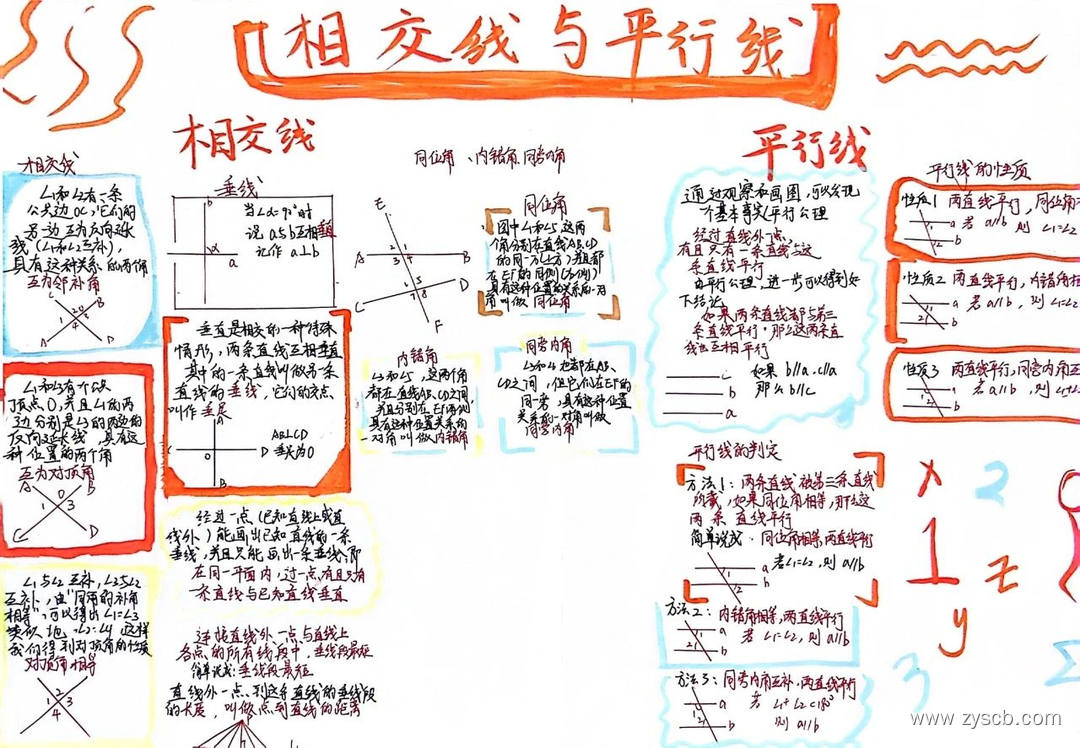 相交线与平行线
相交线
相交线
∠1和∠2有一条
公共边OC,它们的
另一边互为反向延长
线(∠1和∠2互补),
具有这种关系的两个角
互为邻补角
C B
1 2 3 4
A D
∠1和∠3有个公共
顶点O,并且∠1的两
边分别是∠3的两边的
反向延长线,具有这
种位置的两个角
互为对顶角
A B
O
1 3
C D
∠1与∠2互补,∠3与∠2
互补,由“同角的补角
相等”,可以得出∠1=∠3
类似地,∠2=∠4,这样
我们得到对顶角的性质
对顶角相等
2
1 3
4
垂线
b
α
a
当∠α=90°时
说a与b互相垂直
记作 a⊥b
垂直是相交的一种特殊
情形,两条直线互相垂直
其中的一条直线叫做另一条
直线的垂线,它们的交点
叫作垂足
A
C D
O
B
AB⊥CD
垂足为O
经过一点(已知直线上或直
线外)能画出已知直线的一条
垂线,并且只能画出一条垂线,即
在同一平面内,过一点有且只有
一条直线与已知直线垂直
连接直线外一点与直线上
各点的所有线段中,垂线段最短
简单说成:垂线段最短
直线外一点到这条直线的垂线段
的长度,叫做点到直线的距离
同位角、内错角、同旁内角
E
A B
2 1
3 4
C D
5
7 8
F
同位角
图中∠1和∠5,这两
个角分别在直线AB、CD
的同一方(上方)并且都
在EF的同侧(右侧)
具有这种位置的关系的一对
角叫做 同位角
内错角
∠3和∠5,这两个角
都在直线AB、CD之间,
并且分别在EF两侧
具有这种位置关系的
一对角叫做内错角
同旁内角
都在AB、
CD之间,但它们在EF的
同一旁,具有这种位置
关系的一对角叫做
同旁内角
平行线
通过观察和画图,可以发现
一个基本事实(平行公理
经过直线外一点,
有且只有一条直线与这
条直线平行
由平行公理,进一步可以得到如
下结论
如果两条直线都与第三
条直线平行,那么这两条直
线也互相平行
c
b
a
如果 b//a,c//a
那么 b//c
平行线的判定
方法1:两条直线被第三条直线
所截,如果同位角相等,那么这
两条直线平行
简单说成:同位角相等,两直线平行
1 a
2 b
若∠1=∠2,则 a//b
方法2:内错角相等,两直线平行
a
b
若 ∠1=∠2,则 a//b
方法3:同旁内角互补,两直线平行
a
b
若 ∠1+∠2=180°
则 a//b
平行线的性质
性质1 两直线平行,同位角
1 a
2 b
若 a//b 则 ∠1=∠2
性质2 两直线平行,内错角
a
b
若 a//b,则 ∠1=∠2
性质3 两直线平行,同旁内角
1
2
若 a//b,则
x 2
1 z
y
3 Σ
www.zyscb.com